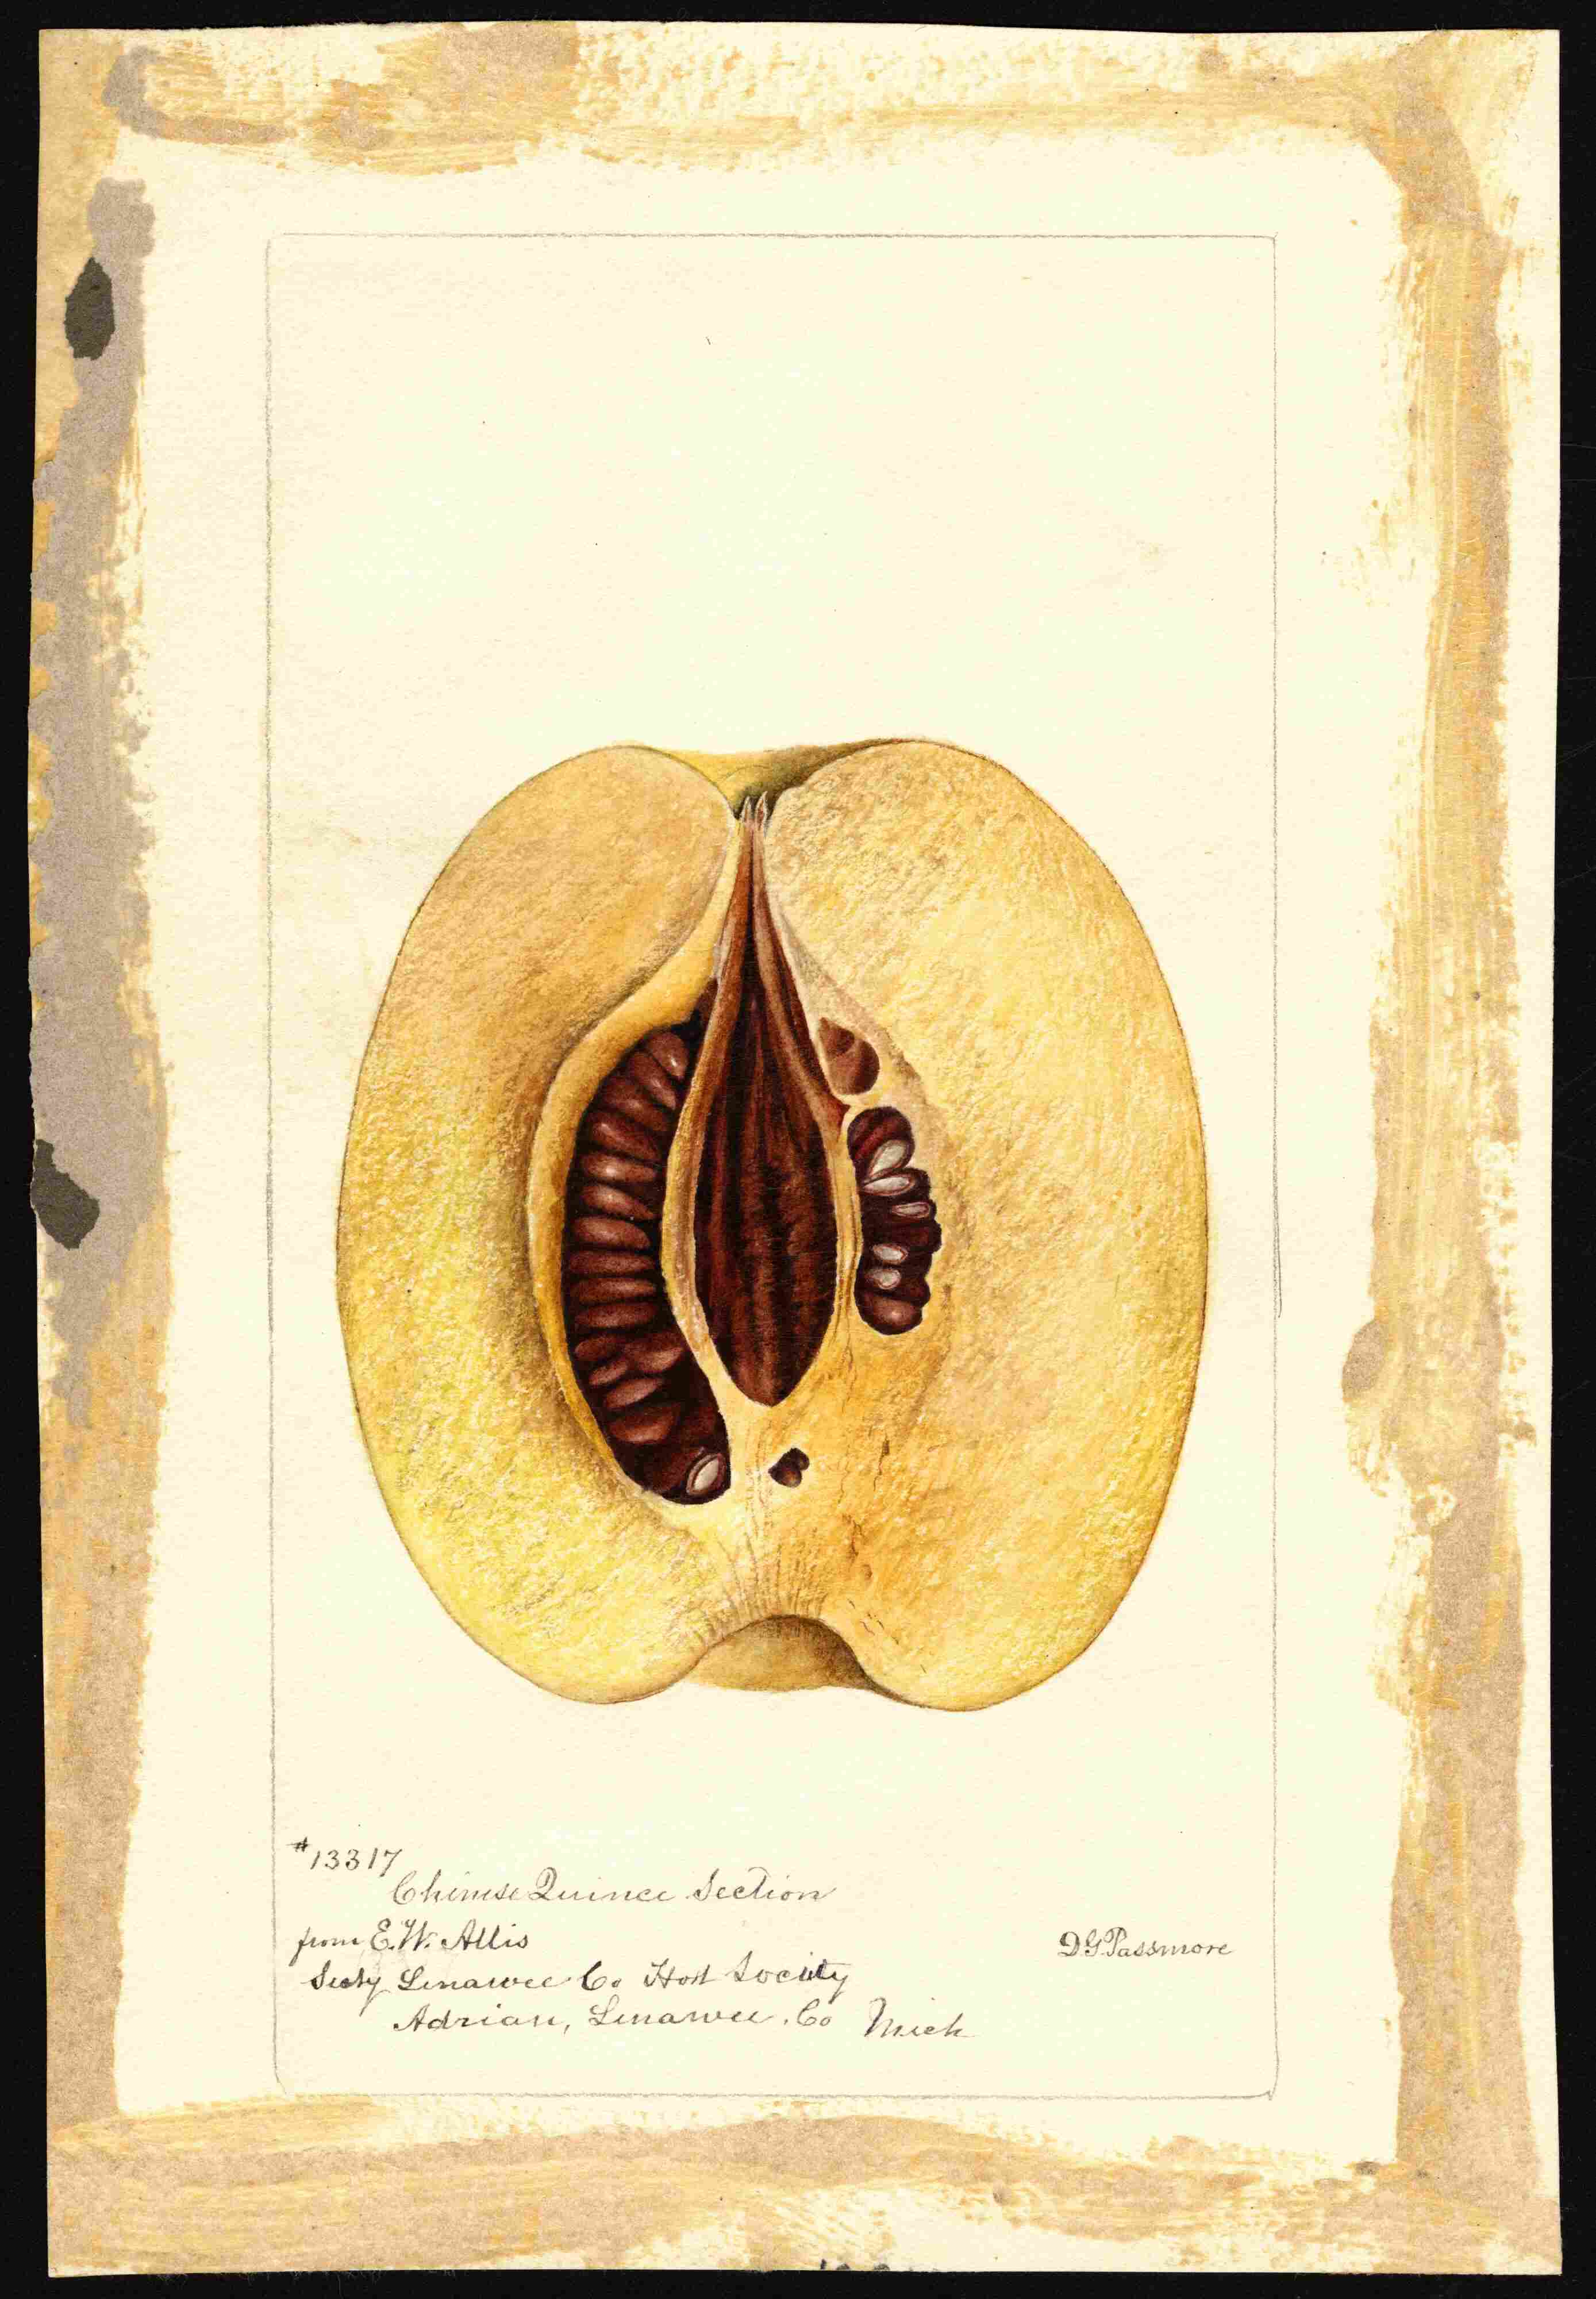 #13317
Chinese Quince Section
from E. W. Allis
Secty Lenawee Co Hort Society
Adrian, Lenawee. Co Mich
D G Passmore